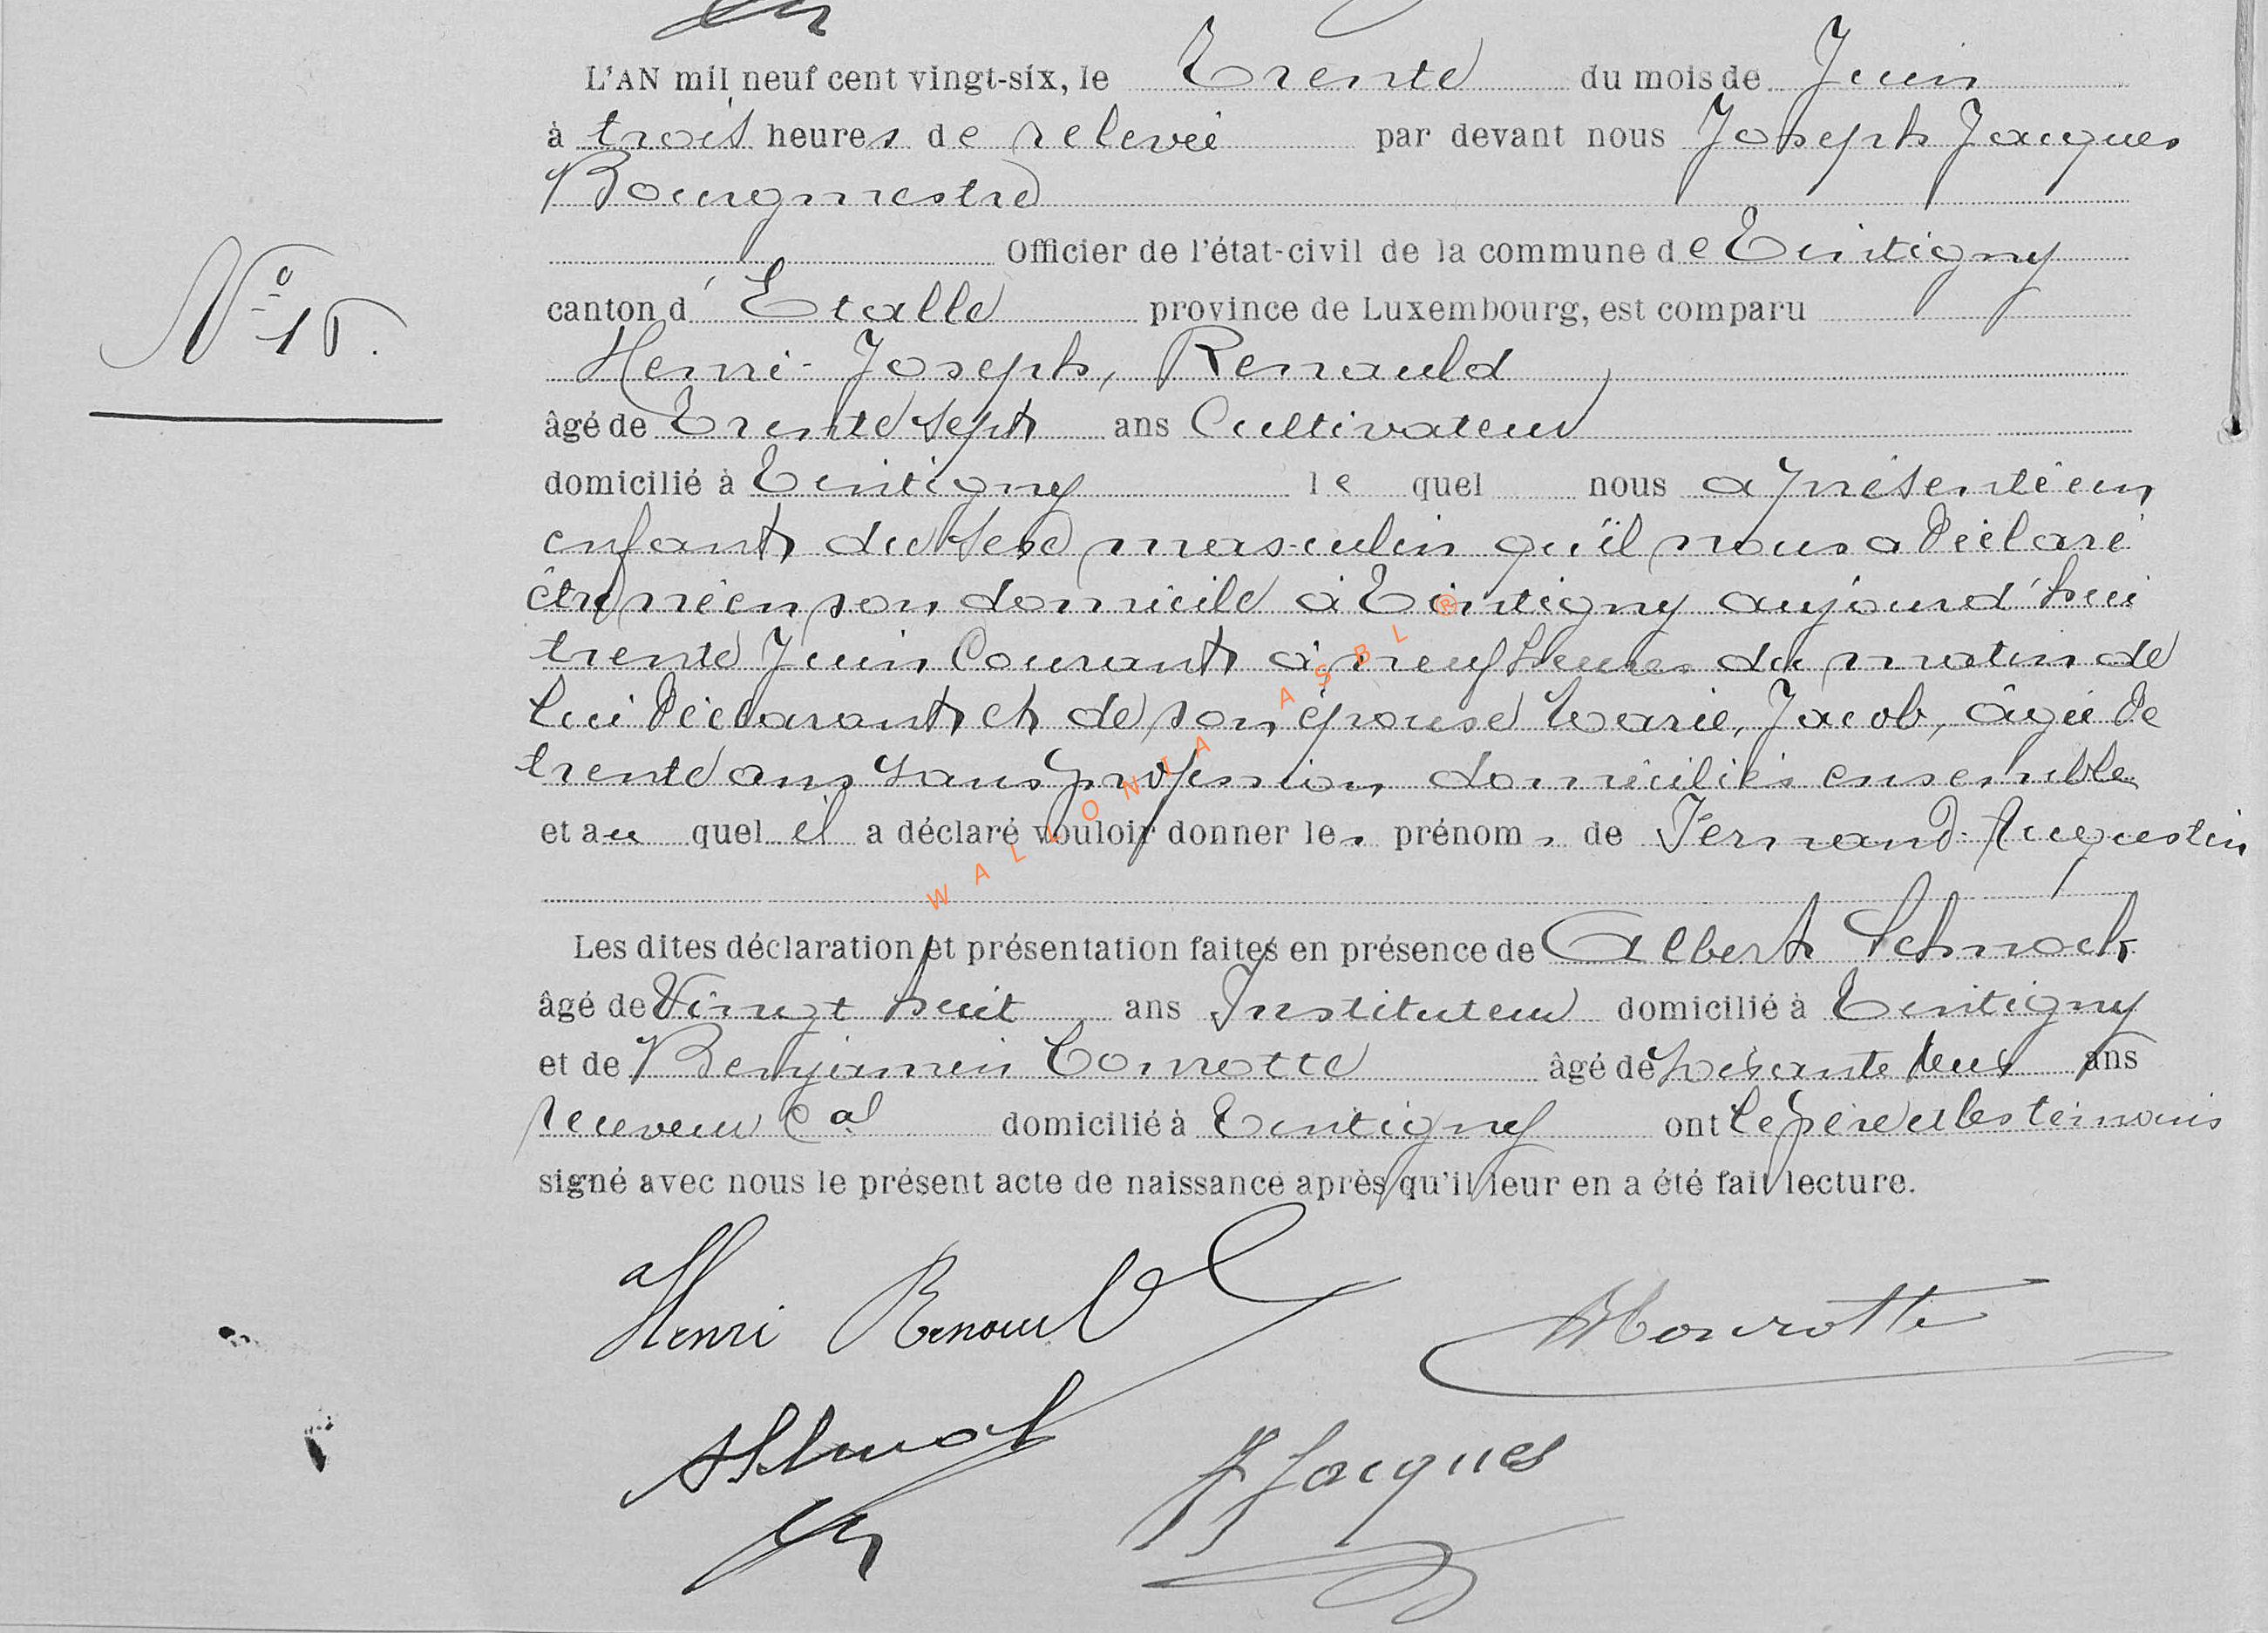 L'AN mil neuf cent vingt-six, le Trente du mois de Juin
à trois heures de relevée par devant nous Joseph Jacques
Bourgmestre
Officier de l'état-civil de la commune de Tintigny
canton d'Etalle province de Luxembourg, est comparu
N°
Henri-Joseph, Renauld
âgé de Trente sept ans Cultivateur
domicilié à Tintigny le quel nous a présenté un
enfant du sexe masculin qu'il nous a déclaré
être né en son domicile à Tintigny aujourd'hui
trente Juin Courant à neuf heures du matin de
lui déclarant et de son épouse Marie, Jacob, âgée de
trente ans sans profession domiciliés ensemble
et au quel il a déclaré vouloir donner les prénoms de Fernand-Augustin
WALLONIA ASBL ®
Les dites déclaration et présentation faites en présence de Albert Schnock
âgé de Vingt huit ans Instituteur domicilié à Tintigny
et de Benjamin âgé de ans
receveur cal domicilié à Tintigny ont le père et les témoins
signé avec nous le présent acte de naissance après qu'il leur en a été fait lecture.
Henri Renauld
J Jacques